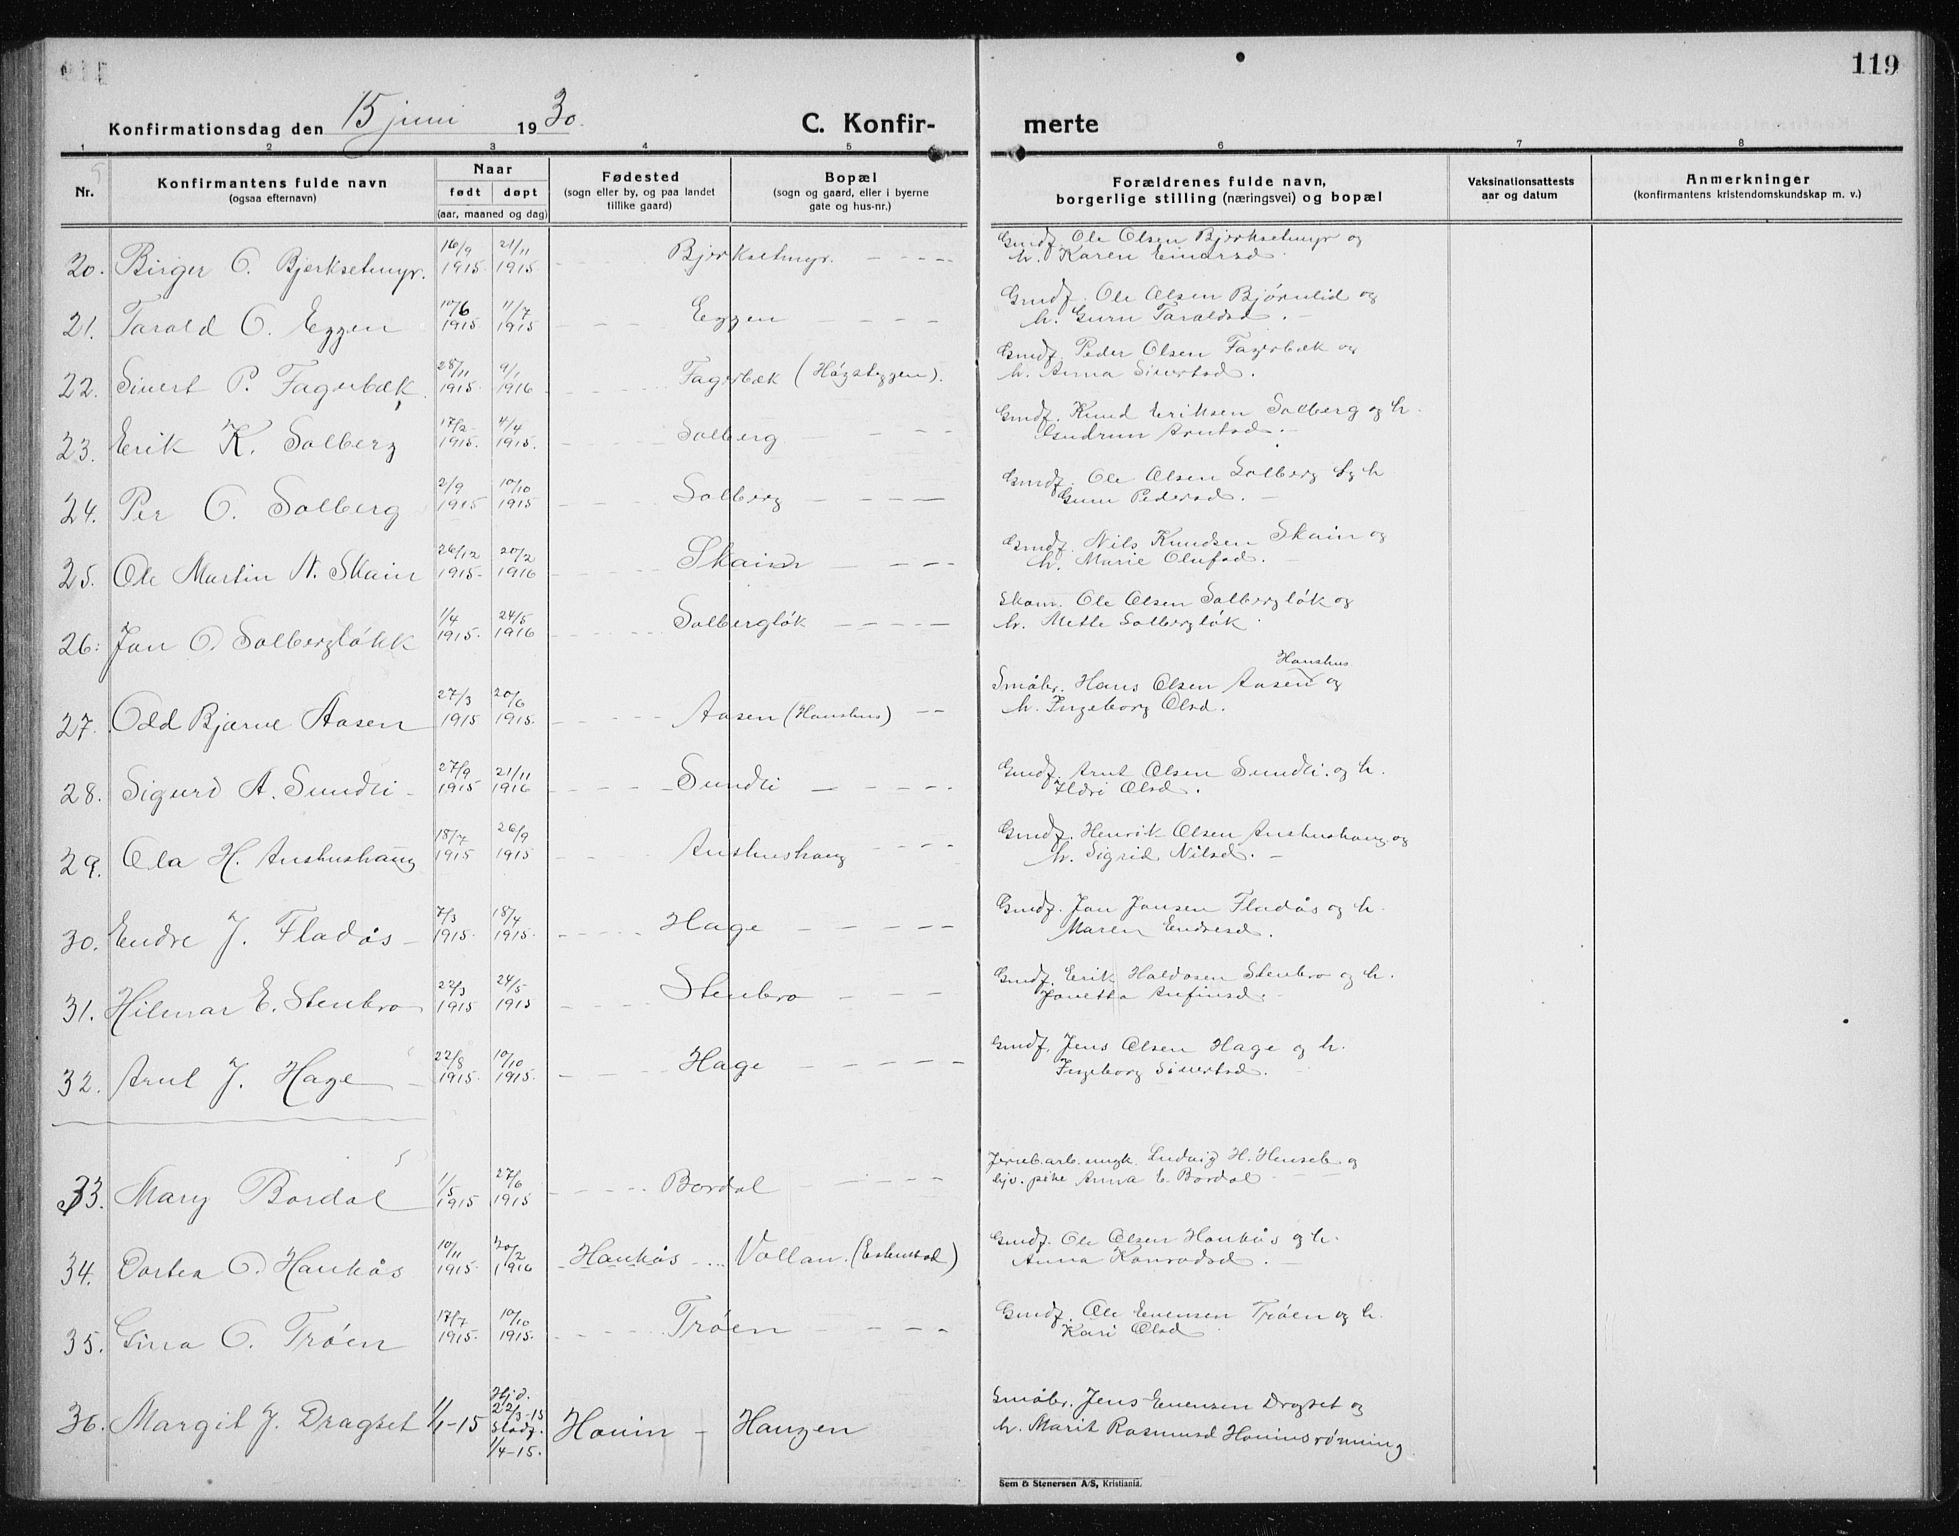 119
Konfirmationsdag den 15 juni 1930.
C. Konfir- merte
1 2 3 4 5 6 7 8
Nr. Konfirmantens fulde navn (ogsaa efternavn) Naar født døpt (aar, maaned og dag) Fødested (sogn eller by, og paa landet tillike gaard) Bopæl (sogn og gaard, eller i byerne gate og hus-nr.) Forældrenes fulde navn, borgerlige stilling (næringsvei) og bopæl Vaksinationsattests aar og datum Anmerkninger (konfirmantens kristendomskundskap m. v.)
20. Birger O. Bjerksetmyr. 16/9 1915. 21/11 1915 Bjerksetmyr. Gmdf. Ole Olsen Bjerksetmyr og
h. Karen Einarsd.
21. Tarald O. Eggen 10/6 1915 11/7 1915 Eggen Gmdf. Ole Olsen Bjørnlid og
h. Guru Taraldsd.
22. Sivert P. Fagerbæk. 28/11 1915. 9/1 1916 Fagerbæk (Høgsteggen). Gmdf. Peder Olsen Fagerbæk og
h. Anna Sivertsd.
23. Erik K. Solberg 17/2 1915. 4/4 1915. Solberg Gmdf. Knud Eriksen Solberg og h.
Gudrun Arntsd.
24. Per O. Solberg 2/9 1915 10/10 1915 Solberg Gmdf. Ole Olsen Solberg og h
Guru Pedersd.
25. Ole Martin N. Skain 26/12 1915. 20/2 1916 Skain Gmdf. Nils Knudsen Skain og
h. Marie Olufsd.
26. Jon O. Solbergløkk 1/4 1915. 24/5 1916 Solbergløk Skom. Ole Olsen Solbergløk og
h. Mette Solbergløk.
27. Odd Bjarne Aasen 27/3 1915 20/6 1915. Aasen (Hanshus) Småbr. Hans Olsen Aasen Hanshus og
h. Ingeborg Olsd.
28. Sigurd A. Sundli 27/9 1915 21/11 1916 Sundli Gmdf. Arnt Olsen Sundli. og h.
Ildri Olsd.
29. Ola H. Aushushaug 18/7 1915 26/9 1915 Aushushaug Gmdf. Henrik Olsen Aushushaug og
h. Sigrid Nilsd.
30. Endre J. Fladås 7/3 1915. 18/4 1915. Hage Gmdf. Jon Jonsen Fladås og h.
Maren Endresd.
31. Hilmar E. Stenbro 22/3 1915 24/5 1915 Stenbro Gmdf. Erik Haldosen Stenbro og h.
Jonetta Anfinsd.
32. Arnt J. Hage 22/8 1915. 10/10 1915. Hage Gmdf. Jens Olsen Hage og h.
Ingeborg Sivertsd.
33. Mary Bordal 1/5 1915 27/6 1915 Bordal Jernb.arb. ungk. Ludvig H. og
tjv. pike Anna E. Bordal
34. Dortea O. Haukås 10/11 1915. 20/2 1916 Haukås Vollan. Gmdf. Ole Olsen Haukås og h.
Anna Konradsd.
35. Gina O. Trøen 17/7 1915. 10/10 1915. Trøen Gmdf. Ole Evensen Trøen og h.
Kari Olsd
36. Margit J. Dragset 1/1-15 Hjd. 22/3-15 Stadf. 1/4-15. Hovin Haugen Småbr. Jens Evensen Dragset og
h. Marit Rasmusd Hovinsrønning
Sem & Stenersen A/S, Kristiania.